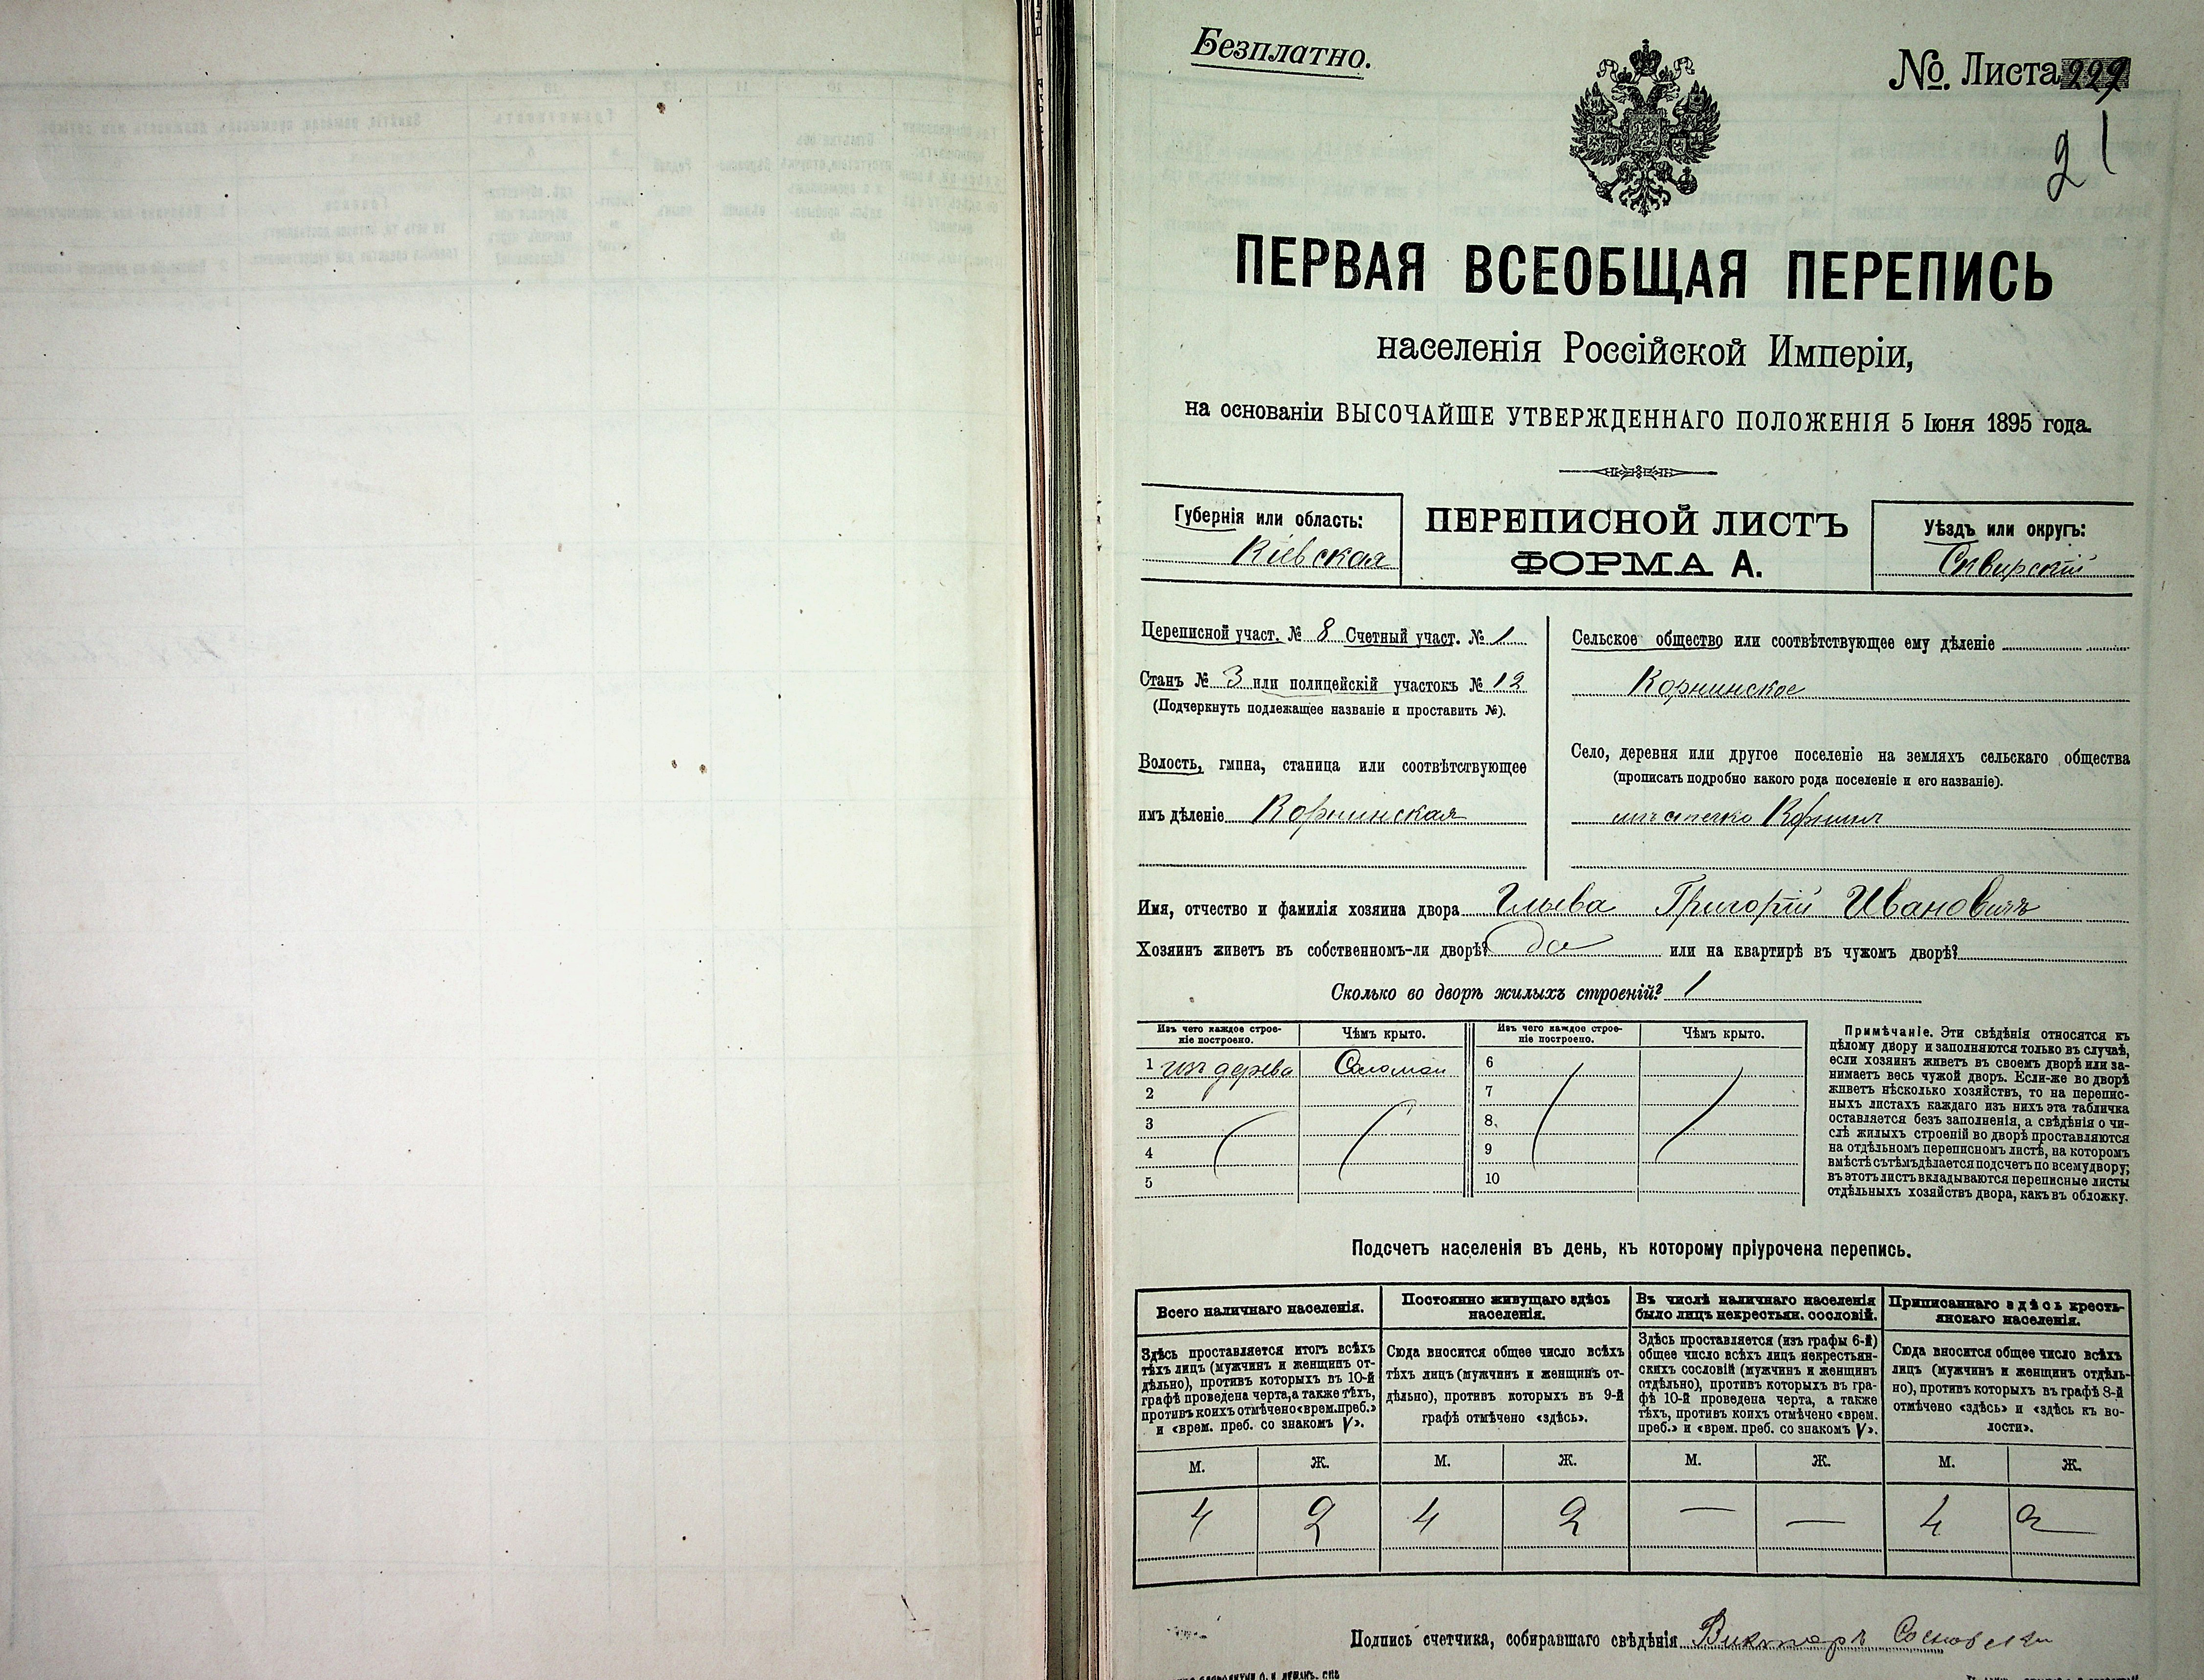 Безплатно.
№. Листа 229
21
ПЕРВАЯ ВСЕОБЩАЯ ПЕРЕПИСЬ
населенія Россійской Имперіи,
на основаніи ВЫСОЧАЙШЕ УТВЕРЖДЕННАГО ПОЛОЖЕНІЯ 5 Іюня 1895 года.
Губернія или область:
Кіевская
ПЕРЕПИСНОЙ ЛИСТЪ
ФОРМА А.
Уѣздъ или округъ:
Сквирскій
Переписной участ. № 8 Счетный участ. № 1
Станъ № 3 или полицейскій участокъ № 12
(Подчеркнуть подлежащее названіе и проставить №).
Волость, гмина, станица или соотвѣтствующее
имъ дѣленіе Корнинская
Сельское общество или соотвѣтствующее ему дѣленіе
Корнинское
Село, деревня или другое поселеніе на земляхъ сельскаго общества
(прописать подробно какого рода поселеніе и его названіе).
мѣстечко Корнинъ
Имя, отчество и фамилія хозяина двора Глыва Григорій Ивановичъ
Хозяинъ живетъ въ собственномъ-ли дворѣ? да или на квартирѣ въ чужомъ дворѣ?
Сколько во дворѣ жилыхъ строеній? 1
Изъ чего каждое строе-
ніе построено.
Чѣмъ крыто.
Изъ чего каждое строе-
ніе построено.
Чѣмъ крыто.
1 изъ дерева Соломой 6
2 7
3 8
4 9
5 10
Примѣчаніе. Эти свѣдѣнія относятся къ
цѣлому двору и заполняются только въ случаѣ,
если хозяинъ живетъ въ своемъ дворѣ или за-
нимаетъ весь чужой дворъ. Если-же во дворѣ
живетъ нѣсколько хозяйствъ, то на перепис-
ныхъ листахъ каждаго изъ нихъ эта табличка
оставляется безъ заполненія, а свѣдѣнія о чи-
слѣ жилыхъ строеній во дворѣ проставляются
на отдѣльномъ переписномъ листѣ, на которомъ
вмѣстѣ съ тѣмъ дѣлается подсчетъ по всему двору;
въ этотъ листъ вкладываются переписные листы
отдѣльныхъ хозяйствъ двора, какъ въ обложку.
Подсчетъ населенія въ день, къ которому пріурочена перепись.
Всего наличнаго населенія.
Здѣсь проставляется итогъ всѣхъ
тѣхъ лицъ (мужчинъ и женщинъ от-
дѣльно), противъ которыхъ въ 10-й
графѣ проведена черта, а также тѣхъ,
противъ коихъ отмѣчено «врем. преб.»
и «врем. преб. со знакомъ V».
Постоянно живущаго здѣсь
населенія.
Сюда вносится общее число всѣхъ
тѣхъ лицъ (мужчинъ и женщинъ от-
дѣльно), противъ которыхъ въ 9-й
графѣ отмѣчено «здѣсь».
Въ числѣ наличнаго населенія
было лицъ некрестьян. сословій.
Здѣсь проставляется (изъ графы 6-й)
общее число всѣхъ лицъ некрестьян-
скихъ сословій (мужчинъ и женщинъ
отдѣльно), противъ которыхъ въ гра-
фѣ 10-й проведена черта, а также
тѣхъ, противъ коихъ отмѣчено «врем.
преб.» и «врем. преб. со знакомъ V».
Приписаннаго здѣсь кресть-
янскаго населенія.
Сюда вносится общее число всѣхъ
лицъ (мужчинъ и женщинъ отдѣль-
но), противъ которыхъ въ графѣ 8-й
отмѣчено «здѣсь» и «здѣсь къ во-
лости».
М. Ж. М. Ж. М. Ж. М. Ж.
4 2 4 2 — — 4 2
Подпись счетчика, собиравшаго свѣдѣнія Викторъ Сосновски